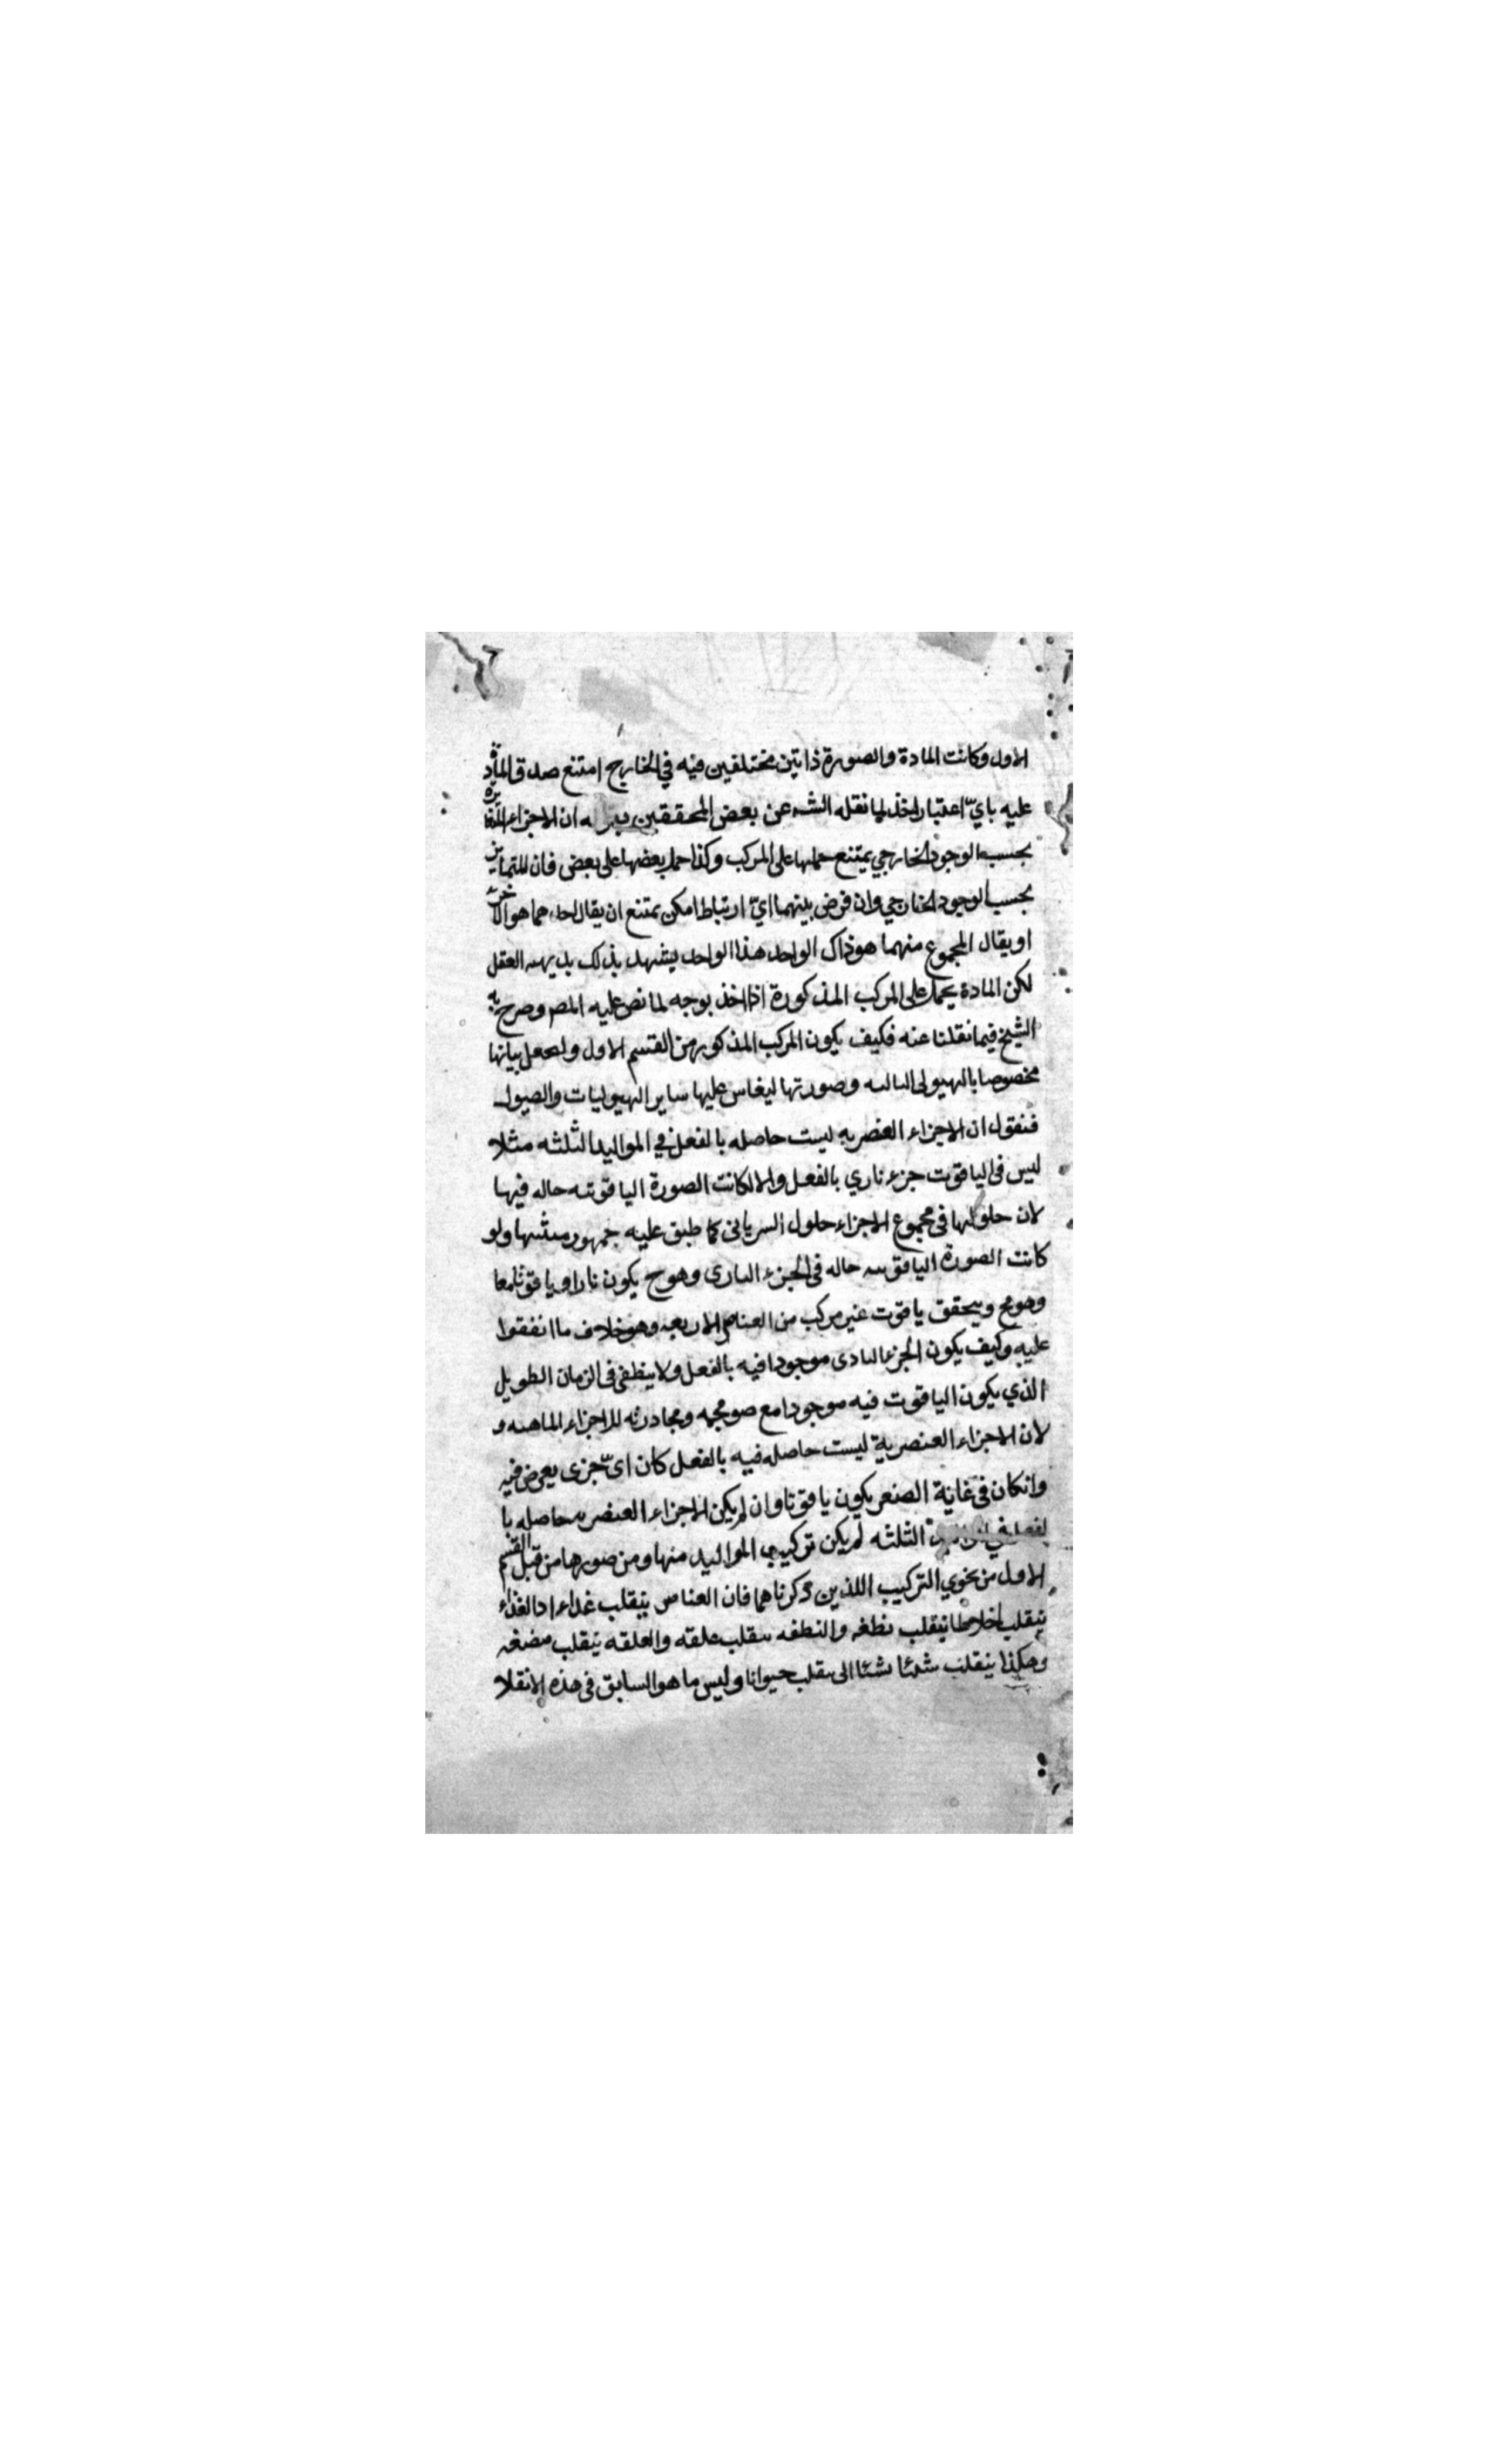 الاول وكانت المادة والصورة ذاتين مختلفين فيه في الخارج امتنع صدق المادة
عليه باي اعتبار اخذ لما نقله الشه عن بعض المحققين ان الاجزاء المتغايرة
بحسب الوجود الخارجي يمتنع حملها على المركب وكذا حمل بعضها على بعض فان المتمايزين
بحسب الوجود الخارجي وان فرض بينهما اي ارتباط امكن يمتنع ان يقال احدهما هو الاخر
او يقال المجموع منهما هو ذاك الواحد هذا الواحد يشهد بذلك بديهه العقل
لكن المادة يحمل على المركب المذكورة اذا اخذ بوجه لما نص عليه المص وصرح به
الشيخ فيما نقلنا عنه فكيف يكون المركب المذكور من القسم الاول ولنجعل بيانها
مخصوصا بالهيولى وصورتها ليقاس عليها ساير الهيوليات والصور
فنقول ان الاجزاء العنصريه ليست حاصله بالفعل في المواليد الثلثه مثلا
ليس في الياقوت جزء ناري بالفعل والا لكانت الصورة الياقوتيه حاله فيها
لان حلولها في مجموع الاجزاء حلول السرياني كما طبق عليه جمهور مثبتيها ولو
كانت الصورة الياقوتيه حاله في الجزء الناري وهو ح يكون نارا وياقوتا معا
وهو مح ويتحقق ياقوت غير مركب من العناصر الاربعه وهو خلاف ما اتفقوا
عليه وكيف يكون الجزء النارى موجودا فيه بالفعل ولا ينطفى في الزمان الطويل
الذي يكون الياقوت فيه موجودا مع حجمه ومجاورته للاجزاء المائيه و
لان الاجزاء العنصرية ليست حاصله فيه بالفعل كان اي جزى يفرض فيه
وان كان في غاية الصغر يكون ياقوتا وان لم يكن الاجزاء العنصريه حاصله با
لفعل في الثلثه لم يكن تركيب المواليد منها ومن صورها من قبل القسم
الاول من نحوي التركيب اللذين ذكرناهما فان العناصر ينقلب غداء والغذاء
ينقلب اخلاطا ينقلب نطفه والنطفه ينقلب علقه والعلقه ينقلب مضغه
وهكذا ينقلب شيئا شيئا الى ينقلب حيوانا وليس ما هو السابق في هذه الانقلا